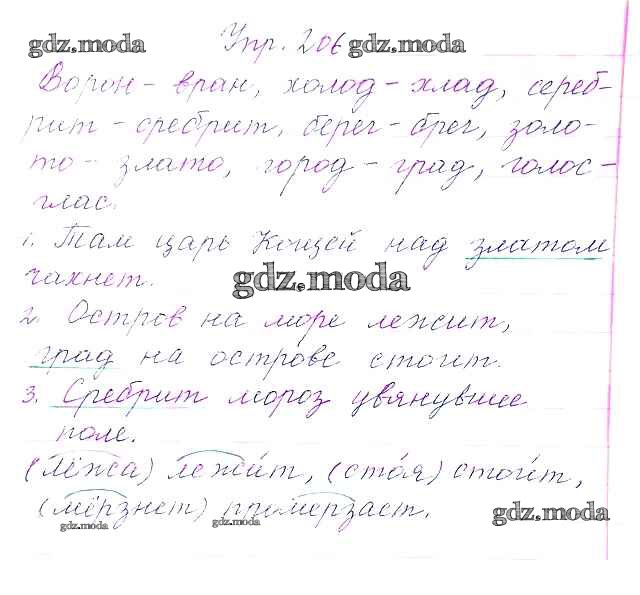 Упр. 206
Ворон - вран, холод - хлад, сереб-
рит - сребрит, берег - брег, золо-
то - злато, город - град, голос -
глас.
1. Там царь Кощей над златом
чахнет.
2. Остров на море лежит,
град на острове стоит.
3. Сребрит мороз увянувшее
поле.
(лёжа) лежи́т, (сто́я) стои́т,
(мёрзнет) примерзает.
gdz.moda
gdz.moda
gdz.moda
gdz.moda
gdz.moda
gdz.moda